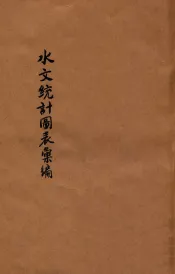 水文統計圖表彙編